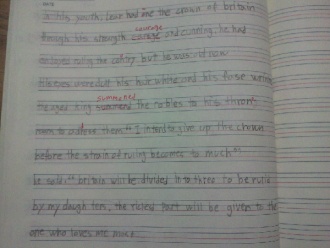 in his youth, Lear had won the crown of britain
though his strength courage and cunning, he had
enjoyed ruling the contry but he was old now
his eyes were dull his hair white and his face wrin
The aged king summoned the nobles to his throne
room to adress them "I intend to give up the crown
before the strain of ruling becomes to much"
he said. "britain will be divided in to three to be ruled
by my daughters, the richest part will be given to the
one who loves me most